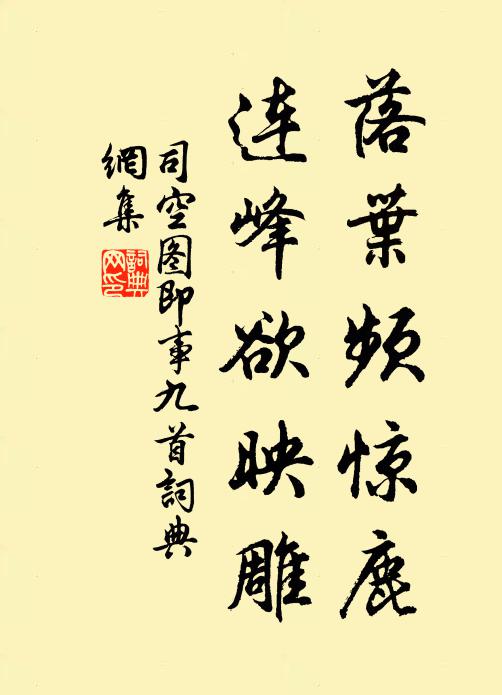 落葉頻惊鹿
连峰欲映雕
司空图即事九首詞典
網集
詞典网印